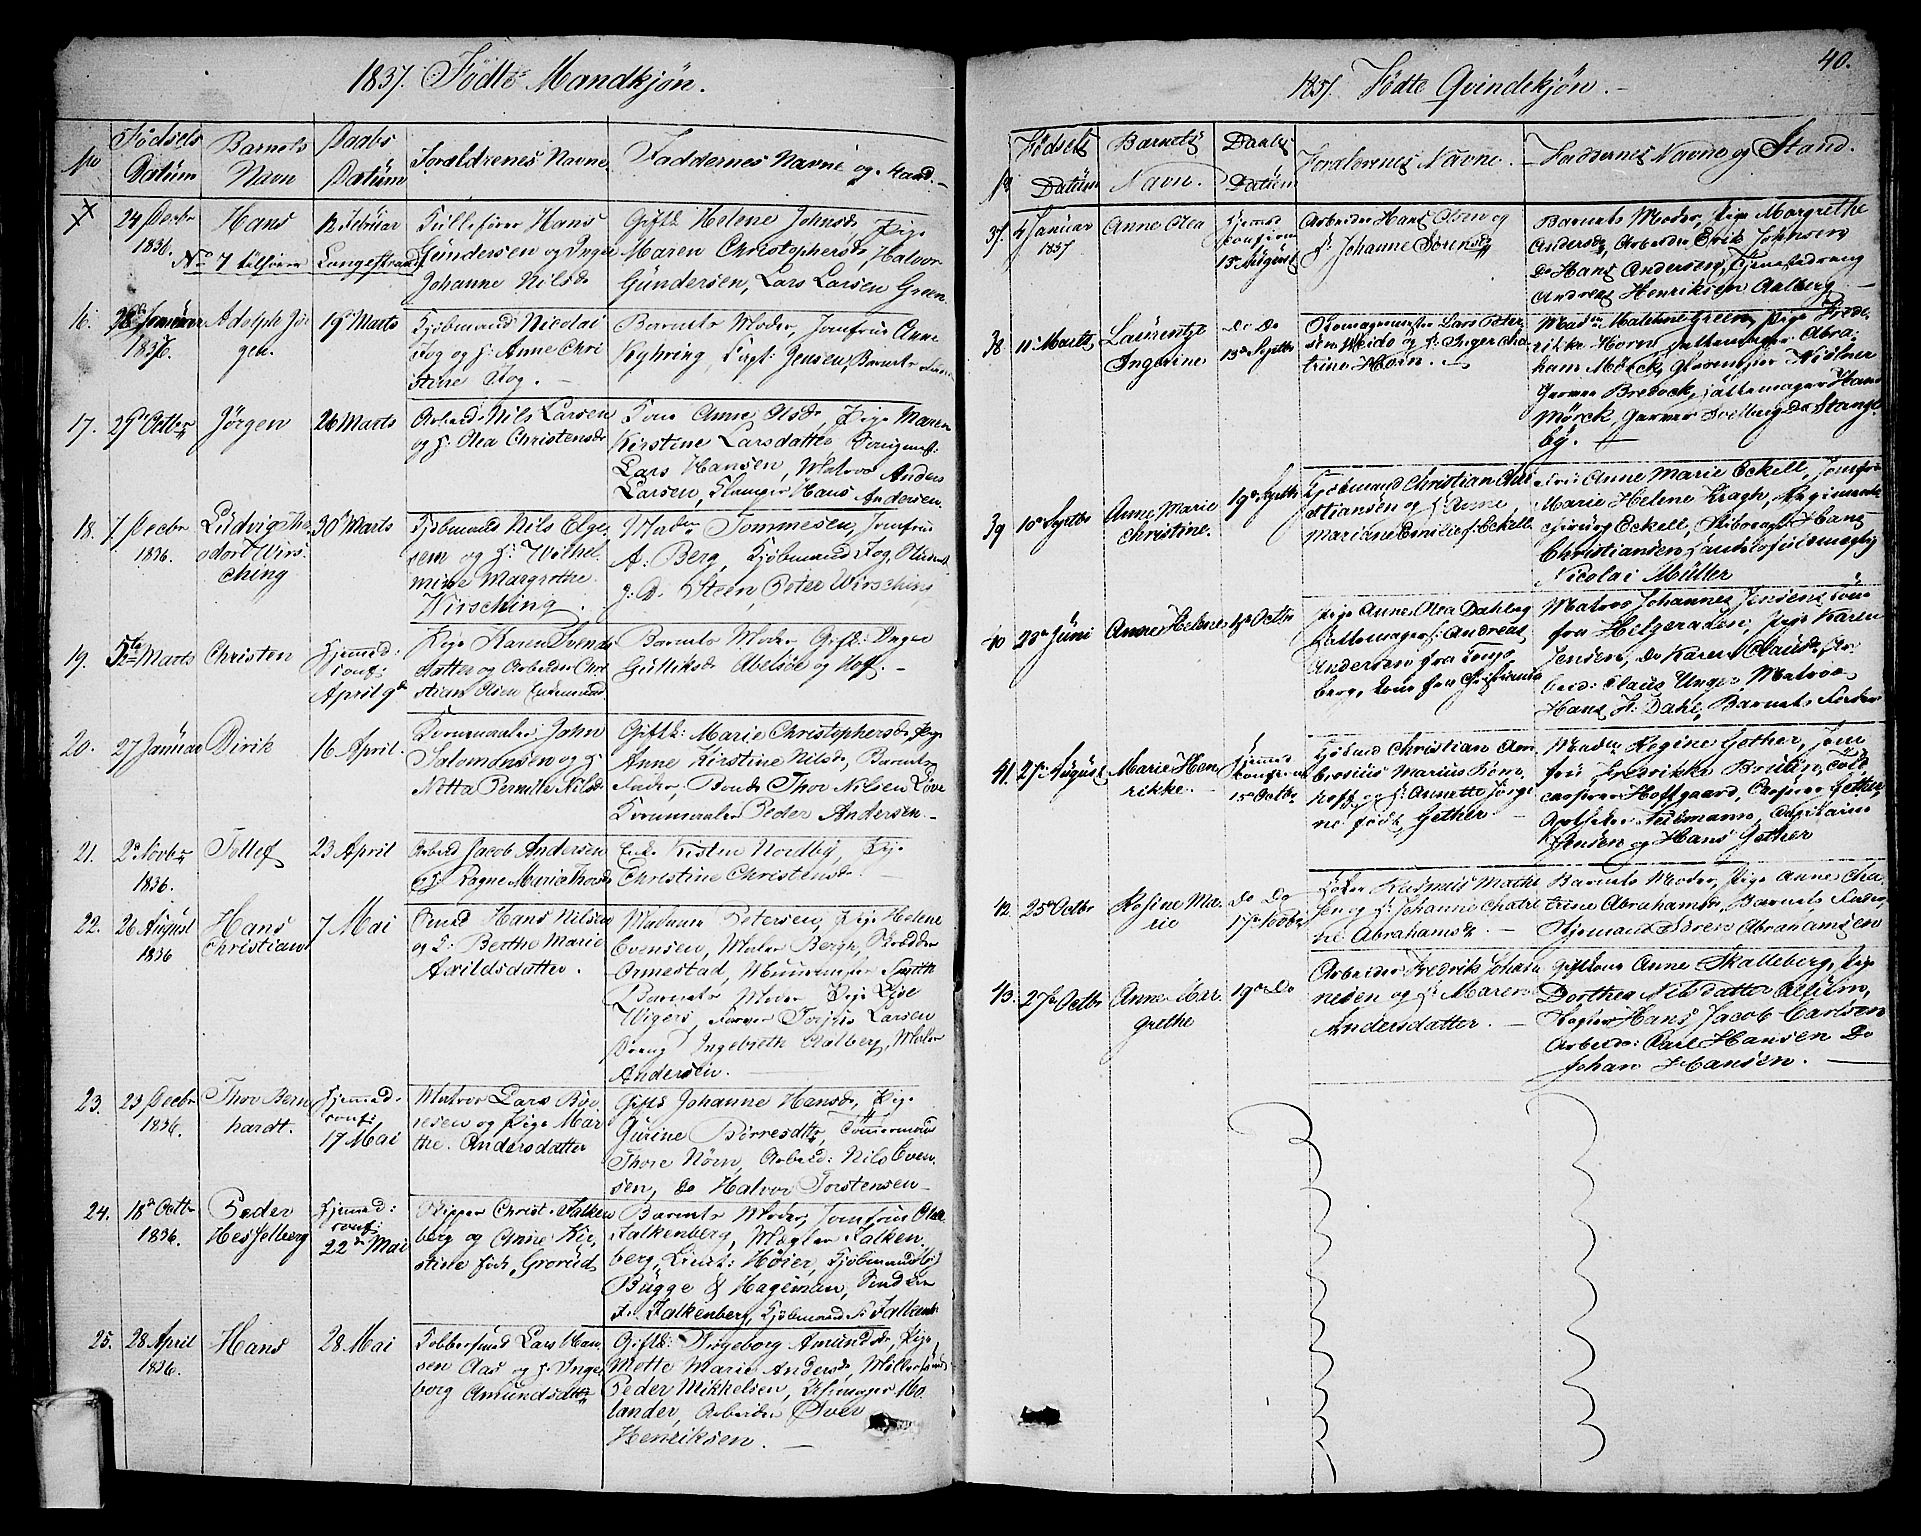 1837. Födte Mandkjön.
No
Födsels Datüm
Barnets Navn
Daabs Datüm
Foraldrenes Navne
Faddernes Navne og Stand.
24 Decbr 1836.
Hans
No 7 tilföier
12 Februar
Langestrand
Hans
Gündersen og Inge
Johanne Nilsd
Giftk: Helene Johnsd, Pige
Maren Christophersd, Halvor
Gündersen, Lars Larsen Green.
16.
1836.
Adolph
19 Marts
Kjöbmand Nicolai
Fog og H: Anne Chri
stine Fog. –
Barnets Moder, Jomfrue Anne
Jensen, Barnets Fader
17.
29 Octbr
Jörgen
26 Marts
Arbeid: Nils Larsen
og H: Olea Christensd
Kone Anne Olsd, Pige Maren
Kirstine Larsdatter
Lars Hansen, Matros Anders
Larsen, Hans Andersen.
18.
7. Decbr 1836.
Ludvig The
odor Wirs
ching
30 Marts
Kjöbmand Nils Elge
sen og H: Vilhel
mine Margrethe
Wirsching.
Madm Tommesen, Jomfrue
A: Berg, Kjöbmand Fog, Student
Steen, Peter Wirsching
19.
5te Marts
Christen
Hjemmed:
conf:
April 9de
Pige Karen Svends
datter og Arbeider Chri
stian Olsen
Barnets Moder Gift: Inger
Gulliksd Abelsöe og Hoff. –
20.
27 Januar
Dirik
16 April.
Kornmaaler John
Salomonsen og H:
Netta Pernille Nilsd
Giftk: Marie Christophersd, Pige
Anne Kirstine Nilsd, Barnets
Fader, Bonde Thor Nilsen Löve
Kornmaaler Peder Andersen. –
21.
2 Novbr 1836.
Tollef
23 April
Arbeid Jacob Andersen
og H: Ragne Maria Thorsd
Enke Kisten Nordby, Pige
Christine Christensd. –
22.
26 August 1836
Hans
Christian
7 Mai
Hans Nilsen
og H: Berthe Marie
Axildsdatter.
Madmm Petersen, Pige Helene
Evensen, Maler Bergh,
Ormestad, Muurmester Smith
Barnets Moder Pige Lise
Wigers, Larsen
Dreng Ingebreth Aalberg, Maler
Andersen.
23.
23 Decbr 1836.
Thor Bern
hardt.
Hjemmed:
conf:
17 Mai
Matros Lars Bör
resen og Pige Mar
the. Andersdatter
Gift Johanne Hansd, Pige
Gürine Börresdtr, Tömmermand
Thore Nöm, Arbeid: Nils Even
sen, Do Halvor Torstensen –
24.
18 Octbr 1836.
Peder
Hesselberg
Hjemmed:
conf:
22 Mai
Skipper Christ. Falken
berg og Anne Kir
stine föd: Grorüd
Barnets Moder, Jomfrue Olea
Falkenberg, Mægler Falken
berg, Lieut: Höier, Kjöbmand
Bügge & Hageman,
Falkenberg, Kjöbmand Falkenb
25.
28 April 1836.
Hans
28 Mai
Kobbersmed Lars Han
sen Aas og H: Inge
borg Amundsdatr
Giftk: Ingeborg Amundsd, Pige
Mette Marie Andersd,
Peder Mikkelsen, Mo
lander, Arbeider Iver
Henriksen. –
40.
1837. Födte Qvindekjön. –
No
Födsels Datüm
Barnets Navn.
Daabs Datüm
Foralernes Navne.
Faddernes Navne og Stand.
37.
4 Januar 1837
Anne Olea
Hjemmed
confirm
15 August
Arbeider Hans Olsen og
H: Johanne Sörensd
Barnets Moder, Pige Margrethe
Andersd, Arbeider Erik Johnsen
Do Hans Andersen, Tjenestedreng
Andreas Henriksen Aalberg
38
11 Marts
Laurentze
Ingerine
Do Do
13 Septbr
Skomagermester Lars Peter
sen Weide og H: Inger Cha
trine Horn. –
Madm Malthine Green, Pige Frede
rikke Horn Abra
ham Mörck, Skomager Nislner
Garver Bredock, Hattemager Hans
Mörck, Garver Do Stang
by.
39
10 Septbr
Anne Marie
Christine.
19 Septbr
Kjöbmand Christian Chri
stiansen og H: Anne
Mariane Emilie f: Eckell
Anne Marie Eckell, Jomfrue
Marie Helene Kragh, Regiments
chirurg Eckell, Hans
Christiansen,
Nicolai Müller
40
23 Juni
Anne Helene
1 Octbr
Pige Anne Olea Dahl og
Hattemager Andreas
Andersen fra Töns
berg, Christiania
Matros Johannes Jensens Kone
fra Helgeraaen, Pige Karen
Jensen, Do Karen Clausd, Ar
beid: Claus Unger Matros
Hans H: Dahl, Barnets Fader
41.
27 August
Marie Hen
rikke. –
Hjemmed
confirm
15 Octbr
Kjöbmd Christian Am
brosius Marius Köm
hoff og H: Annette Jörgi
ne födt Gether –
Madm Regine Gether, Jom
frü Fredrikke Brüün, Told
casserer Hoffgaard, Casserer Gether,
Apotheker Capitain
Jensen og Hans Gether
42.
25 Octbr
Rosine Ma
rie
Do Do
17 Novbr
Rasmus Mathe
sen og H: Johanne Chatri
ne: Abrahamsd. –
Barnets Moder, Pige Anne Cha
trine Abrahamsd, Barnets Fader
Sören Abrahamsen
43.
27 Octbr
Anne Mar
grethe
19 Do
Arbeider Fredrik Johan
nesen og H: Maren
Andersdatter. –
Giftkone Anne Skalleberg, Pige
Dorthea Nilsdatter
Hans Jacob Carlsen
Arbeider: Carl Hansen Do
Johan Hansen. –